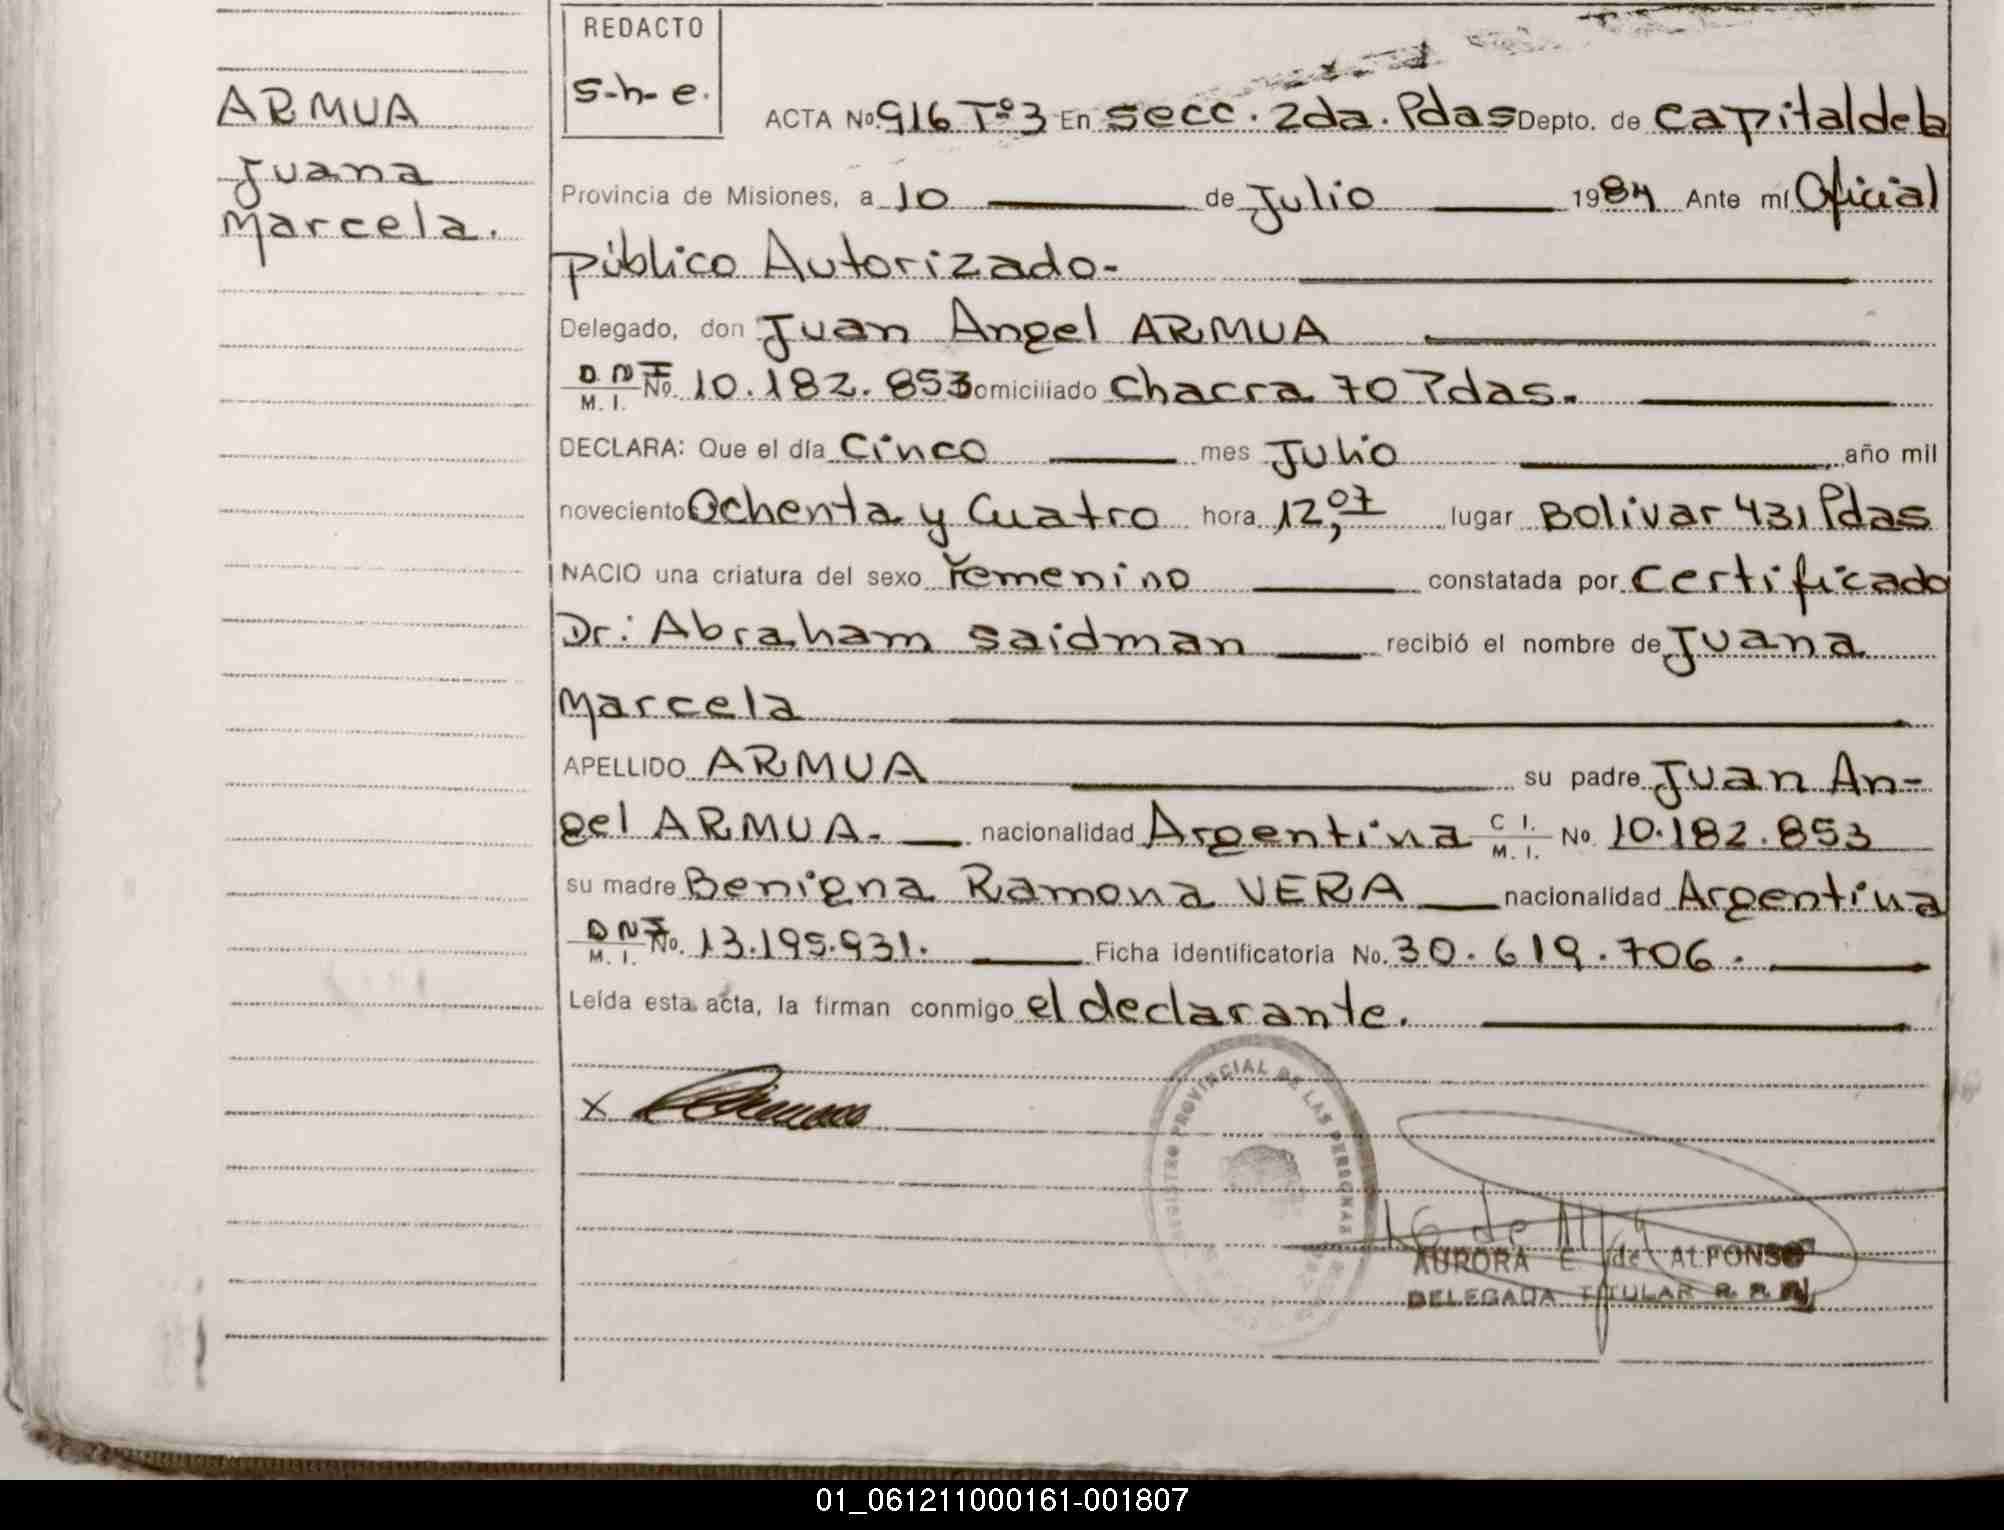 REDACTO
s-h-e.
ARMUA
Juana
Marcela.
ACTA No. 916 Tº3 En secc. 2da. Pdas Depto. de Capital de la
Provincia de Misiones, a 10 de Julio 1984 Ante mí Oficial
público Autorizado-
Delegado, don Juan Angel ARMUA
DNI M. I. No. 10.182.853 omiciliado Chacra 70 Pdas.
DECLARA: Que el día Cinco mes Julio año mil
noveciento Ochenta y Cuatro hora 12,07 lugar Bolivar 431 Pdas
NACIO una criatura del sexo Femenino constatada por Certificado
Dr: Abraham Saidman recibió el nombre de Juana
Marcela
APELLIDO ARMUA su padre Juan An-
gel ARMUA.- nacionalidad Argentina C I. M. I. No. 10.182.853
su madre Benigna Ramona VERA nacionalidad Argentina
DNI M. I. No. 13.195.931. Ficha identificatoria No. 30.619.706.
Leída esta acta, la firman conmigo el declarante.
X
REGISTRO PROVINCIAL DE LAS PERSONAS
AURORA E. de ALFONSO
DELEGADA TITULAR R. P.
01_061211000161-001807